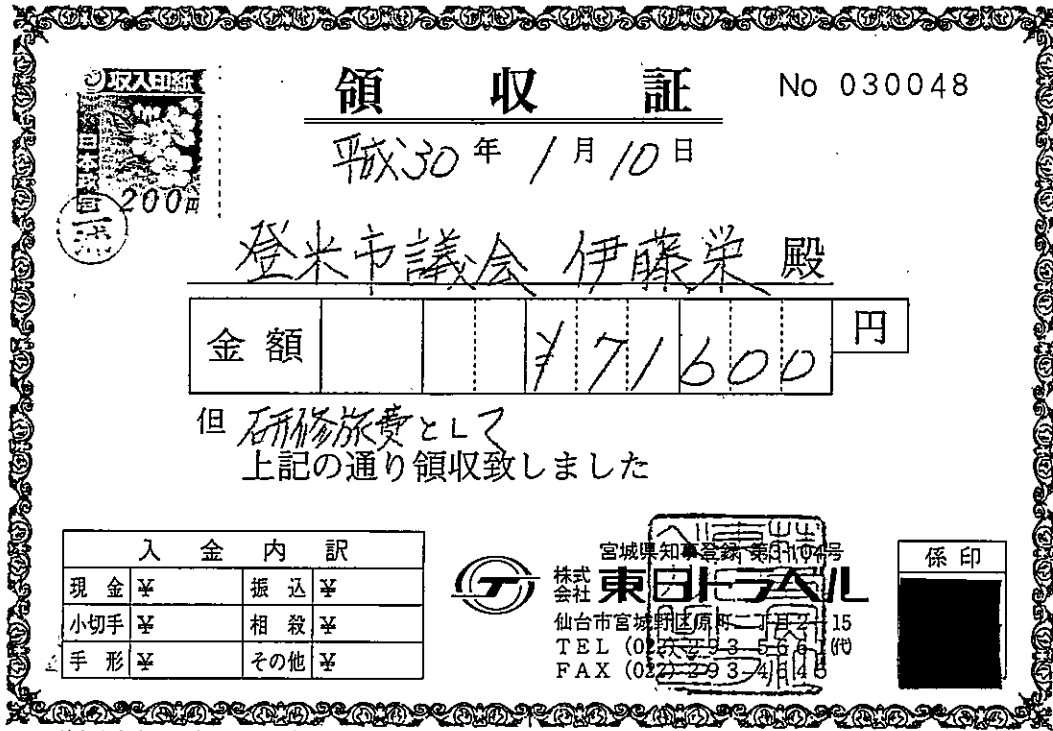 収入印紙
日本政府
200円
領収証
No 030048
平成30年1月10日
登米市議会 伊藤栄 殿
金額 ¥71600 円
但 研修旅費として
上記の通り領収致しました
入金内訳
現金 ¥ 振込 ¥
小切手 ¥ 相殺 ¥
手形 ¥ その他 ¥
宮城県知事登録 第3-104号
株式会社 東日トラベル
仙台市宮城野区原町一丁目2-15
TEL (022) 293-5661(代)
FAX (022) 293-4148
係印